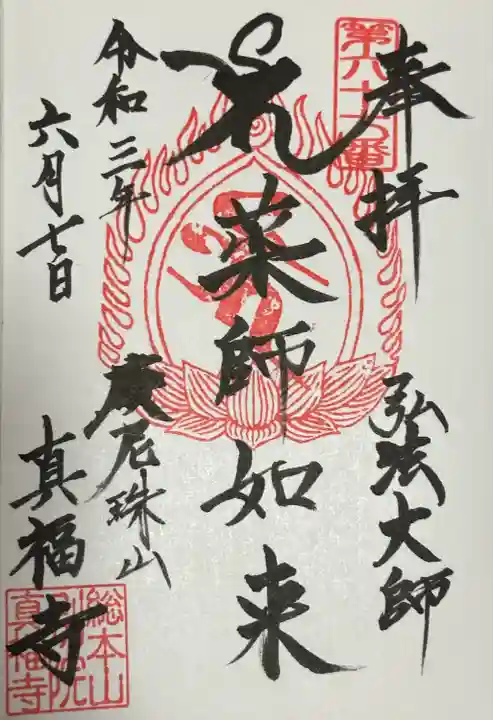 第六十七番
奉拝
弘法大師
薬師如来
摩尼珠山
真福寺
令和三年
六月七日
総本山
別院
真福寺